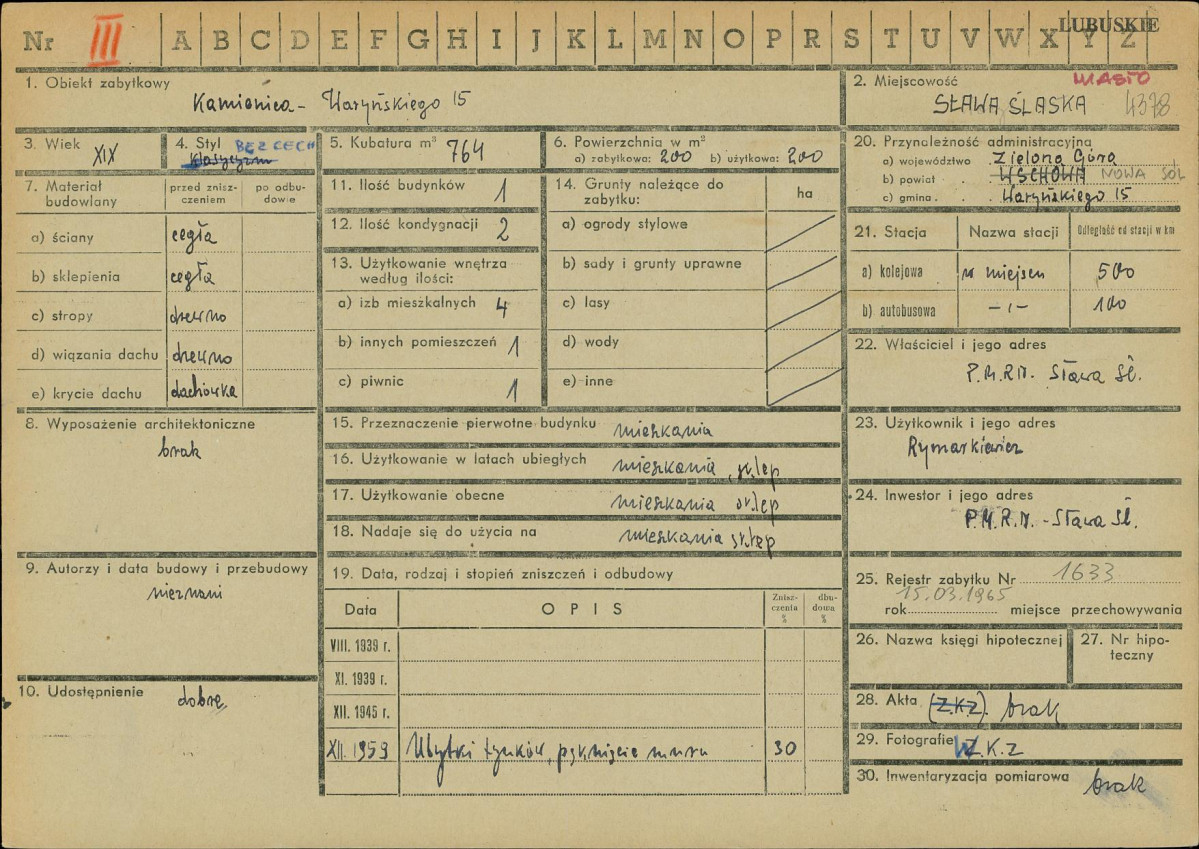 Nr III A B C D E F G H I J K L M N O P R S T U V W X Y Z LUBUSKIE
1. Obiekt zabytkowy
Kamienica - Waryńskiego 15
2. Miejscowość MIASTO
SŁAWA ŚLĄSKA 4378
3. Wiek XIX
4. Styl BEZ CECH
Klasycyzm
5. Kubatura m³ 764
6. Powierzchnia w m²
a) zabytkowa: 200 b) użytkowa: 200
7. Materiał budowlany
przed zniszczeniem
po odbudowie
a) ściany cegła
b) sklepienia cegła
c) stropy drewno
d) wiązania dachu drewno
e) krycie dachu dachówka
8. Wyposażenie architektoniczne
brak
9. Autorzy i data budowy i przebudowy
nieznani
10. Udostępnienie dobre
11. Ilość budynków 1
12. Ilość kondygnacji 2
13. Użytkowanie wnętrza
według ilości:
a) izb mieszkalnych 4
b) innych pomieszczeń 1
c) piwnic 1
14. Grunty należące do
zabytku:
ha
a) ogrody stylowe
b) sady i grunty uprawne
c) lasy
d) wody
e) inne
15. Przeznaczenie pierwotne budynku mieszkania
16. Użytkowanie w latach ubiegłych mieszkania, sklep
17. Użytkowanie obecne mieszkania sklep
18. Nadaje się do użycia na mieszkania sklep
19. Data, rodzaj i stopień zniszczeń i odbudowy
Data
OPIS
Zniszczenia %
dbudowa %
VIII. 1939 r.
XI. 1939 r.
XII. 1945 r.
XII. 1959 Ubytki tynków, pęknięcie muru 30
20. Przynależność administracyjna
a) województwo Zielona Góra
b) powiat WSCHOWA NOWA SÓL
c) gmina Waryńskiego 15
21. Stacja
Nazwa stacji
Odległość od stacji w km
a) kolejowa w miejscu 500
b) autobusowa -ı- 100
22. Właściciel i jego adres
P.M.R.N. Sława Śl.
23. Użytkownik i jego adres
Rymarkiewicz
24. Inwestor i jego adres
P.M.R.N. - Sława Śl.
25. Rejestr zabytku Nr 1633
15.03.1965
rok miejsce przechowywania
26. Nazwa księgi hipotecznej
27. Nr hipoteczny
28. Akta (Z.K.Z). brak
29. Fotografie W.K.Z
30. Inwentaryzacja pomiarowa brak